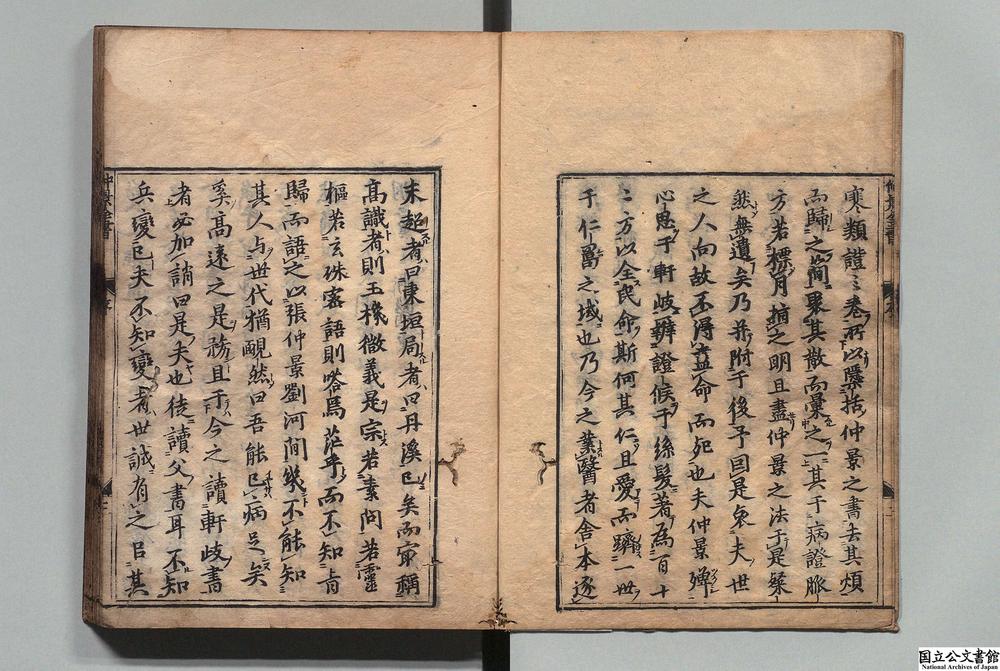 寒類證三卷所以隱括仲景之書去其煩
而歸之簡聚其散而彙之一其于病證脈
方若標月指之明且盡仲景之法于是粲
然無遺矣乃并附于後予因是哀夫世
之人向故不得盡命而死也夫仲景殫
心思于軒岐辨證候于絲髮著為百十
二方以全民命斯何其仁且愛而躋一世
于仁壽之域也乃今之業醫者舍本逐
末超者曰東垣局者曰丹溪已矣而穼稱
高識者則玉機微義是宗若素問若靈
樞若玄珠密語則嗒焉茫乎而不知旨
歸而語之以張仲景劉河間幾不能知
其人与世代猶靦然曰吾能已病足矣
奚高遠之是務且于今之讀軒岐書
者必加誚曰是夫也徒讀父書耳不知
兵變已夫不知變者世誠有之㠯其
仲景全書
国立公文書館
National Archives of Japan